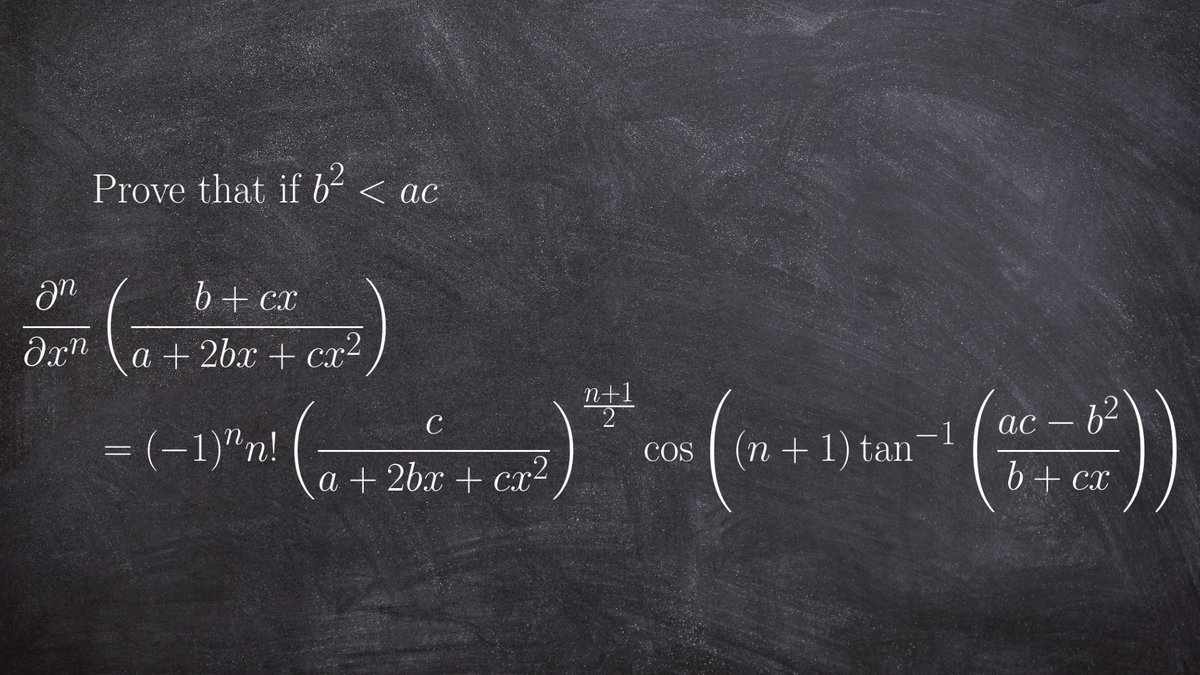 Prove that if b² < ac
∂ⁿ/∂xⁿ ((b + cx)/(a + 2bx + cx²))
= (−1)ⁿn! (c/(a + 2bx + cx²))^((n+1)/2) cos((n + 1) tan⁻¹((ac − b²)/(b + cx)))